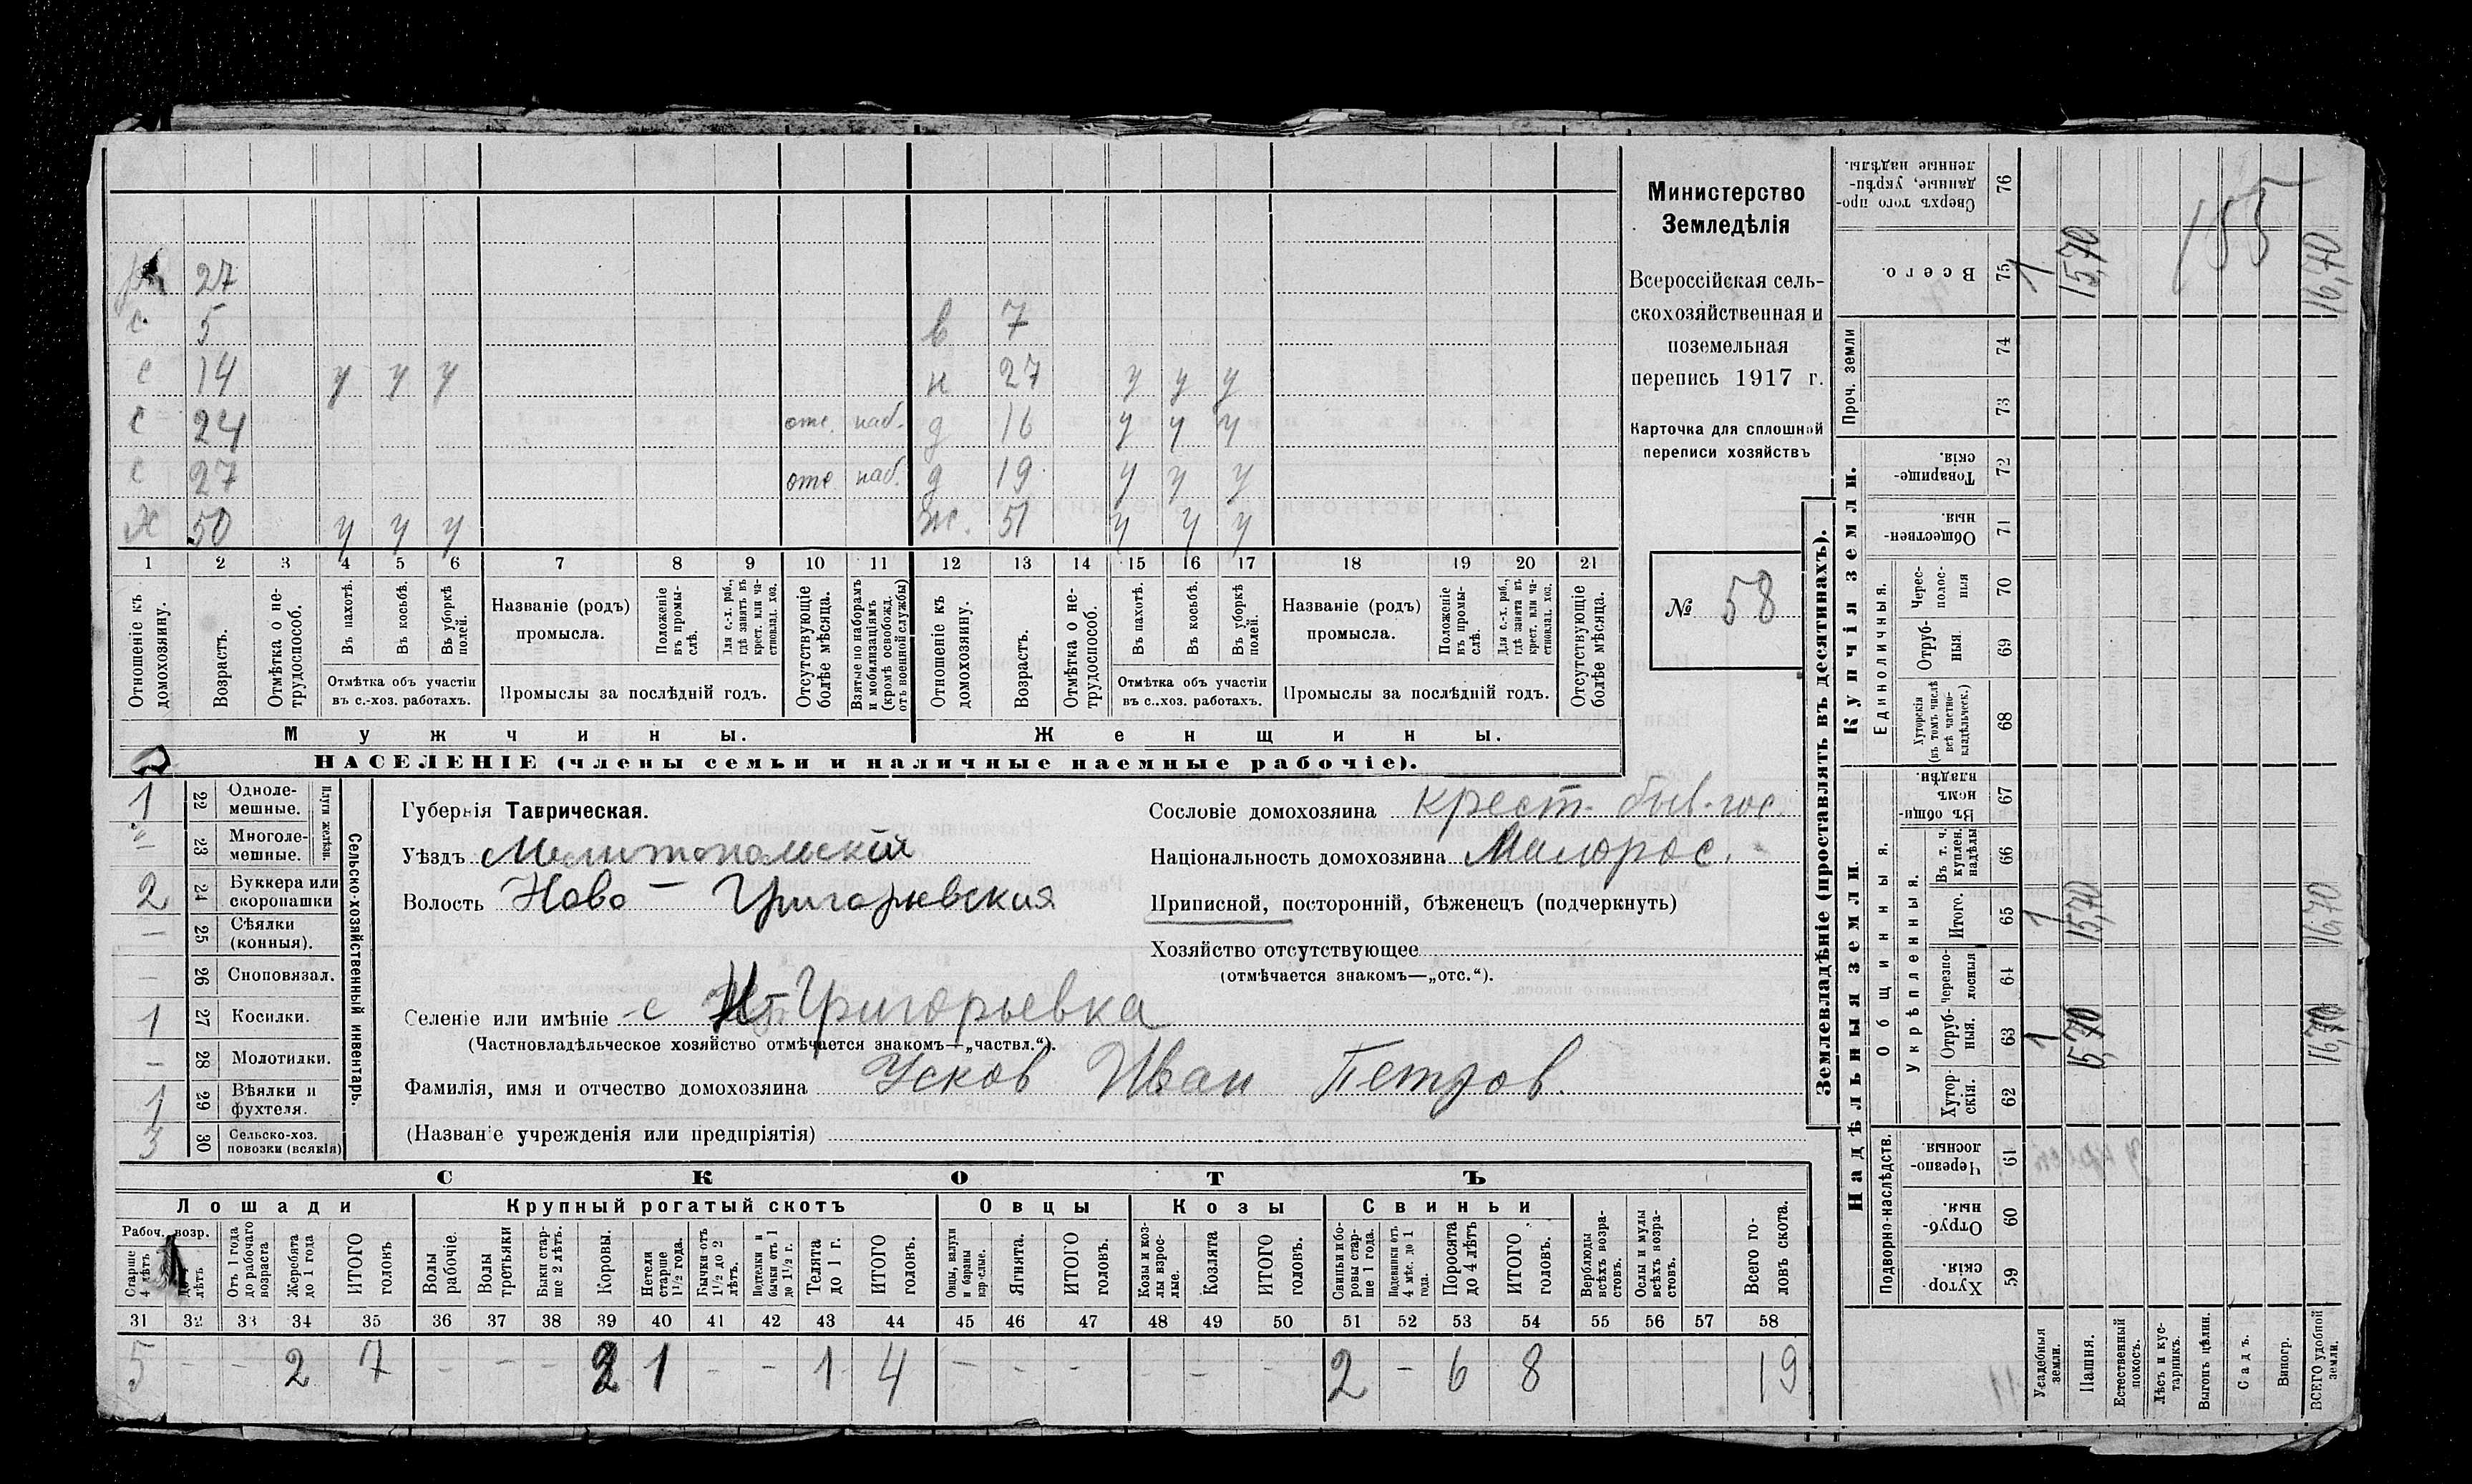 27
с 5 в 7
с 14 у у у н 27 у у у
с 24 отс. наб. д 16 у у у
с 27 отс наб. д 19 у у у
Х 50 у у у ж. 51 у у у
1 2 3 4 5 6 7 8 9 10 11 12 13 14 15 16 17 18 19 20 21
Отношеніе къ домохозяину.
Возрастъ.
Отмѣтка о нетрудоспособ.
Въ пахотѣ.
Въ косьбѣ.
Въ уборкѣ полей.
Отмѣтка объ участіи
въ с.-хоз. работахъ.
Названіе (родъ)
промысла.
Положеніе въ промыслѣ.
Для с.-х. раб., гдѣ занятъ въ крест. или частновлад. хоз.
Промыслы за послѣдній годъ.
Отсутствующіе болѣе мѣсяца.
Взятые по наборамъ и мобилизаціямъ (кромѣ освобожд. отъ военной службы)
Отношеніе къ домохозяину.
Возрастъ.
Отмѣтка о нетрудоспособ.
Въ пахотѣ.
Въ косьбѣ.
Въ уборкѣ полей.
Отмѣтка объ участіи
въ с..хоз. работахъ.
Названіе (родъ)
промысла.
Положеніе въ промыслѣ.
Для с.-х. раб., гдѣ занята въ крест. или частновлад. хоз.
Промыслы за послѣдній годъ.
Отсутствующіе болѣе мѣсяца.
Мужчины. Женщины.
НАСЕЛЕНІЕ (члены семьи и наличные наемные рабочіе).
Министерство
Земледѣлія
Всероссійская сель-
скохозяйственная и
поземельная
перепись 1917 г.
Карточка для сплошной
переписи хозяйствъ
№ 58
Сельско-хозяйственный инвентарь.
Плуги желѣзн.
1 22 Одноле-
мешные.
23 Многоле-
мешные.
2 24 Буккера или
скоропашки
— 25 Сѣялки
(конныя).
— 26 Сноповязал.
1 27 Косилки.
— 28 Молотилки.
1 29 Вѣялки и
фухтеля.
3 30 Сельско-хоз.
повозки (всякія)
Губернія Таврическая.
Уѣздъ Мелитопольскій
Волость Ново-Григорьевская
Селеніе или имѣніе с Н-Григорьевка
(Частновладѣльческое хозяйство отмѣчается знакомъ—„частвл.“).
Фамилія, имя и отчество домохозяина Усков Иван Петров.
(Названіе учрежденія или предпріятія)
Сословіе домохозяина крест. быв. гос.
Національность домохозяина Малорос.
Приписной, посторонній, бѣженецъ (подчеркнуть)
Хозяйство отсутствующее
(отмѣчается знакомъ—„отс.“).
СКОТЪ
Лошади Крупный рогатый скотъ Овцы Козы Свиньи
Рабоч. возр.
Старше 4 лѣтъ
лѣтъ
Отъ 1 года до рабочаго возраста
Жеребята до 1 года
ИТОГО головъ
Волы рабочіе.
Волы третьяки
Быки старше 2 лѣтъ.
Коровы.
Нетели старше 1½ года.
Бычки отъ 1½ до 2 лѣтъ.
Подтелки и бычки отъ 1 до 1½ г.
Телята до 1 г.
ИТОГО головъ.
Овцы, валухи и бараны взрослые.
Ягнята.
ИТОГО головъ.
Козы и козлы взрослые.
Козлята
ИТОГО головъ.
Свиньи и боровы старше 1 года.
Подсвинки отъ 4 мѣс. до 1 года.
Поросята до 4 лѣтъ
ИТОГО головъ.
Верблюды всѣхъ возрастовъ.
Ослы и мулы всѣхъ возрастовъ.
Всего головъ скота.
31 32 33 34 35 36 37 38 39 40 41 42 43 44 45 46 47 48 49 50 51 52 53 54 55 56 57 58
5 - - 2 7 - - - 2 1 - - 1 4 - - - - - - 2 - 6 8 19
Землевладѣніе (проставлять въ десятинахъ).
Надѣльныя земли. Купчія земли. Проч. земли
Подворно-наслѣдств.
Общинныя.
Укрѣпленныя.
Единоличныя.
Хуторскія. 59
Отрубныя. 60
Черезполосныя 61
Хуторскія. 62
Отрубныя. 63 1 15,70 16,70
Черезполосныя 64
Итого. 65 1 15,70 16,70
Въ т. ч. куплен. надѣлы 66
Въ общинномъ владѣн. 67
Хуторскія (въ томъ числѣ всѣ частновладѣльческ.) 68
Отрубныя. 69
Чересполосныя 70
Общественныя. 71
Товарищескія. 72
73
74
Всего. 75 1 15,70 16,70
Сверхъ того проданные, укрѣпленные надѣлы. 76
155
Усадебныя земли.
Пашня.
Естественный покосъ.
Лѣсъ и кустарникъ.
Выгонъ цѣлин.
Садъ.
Виногр.
ВСЕГО удобной земли.